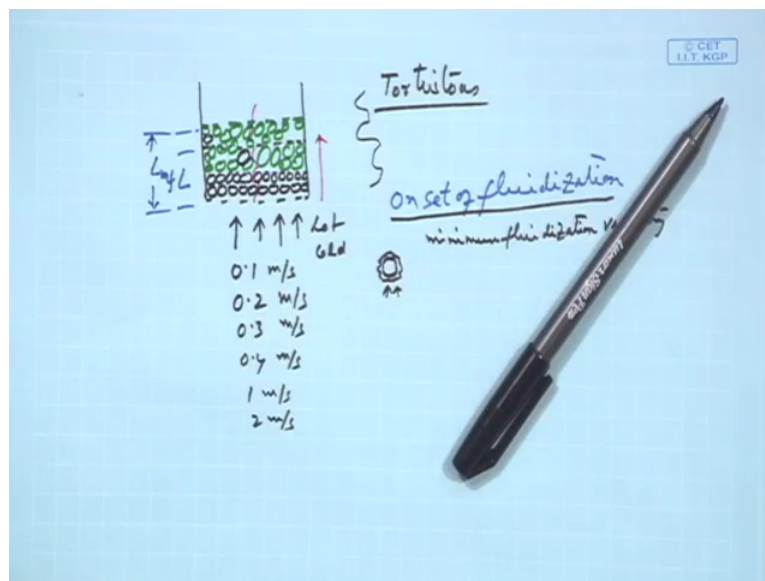 © CET
I.I.T. KGP
Tortutous
Lmf
L
onset of fluidization
minimum fluidization
hot
cold
0.1 m/s
0.2 m/s
0.3 m/s
0.4 m/s
1 m/s
2 m/s